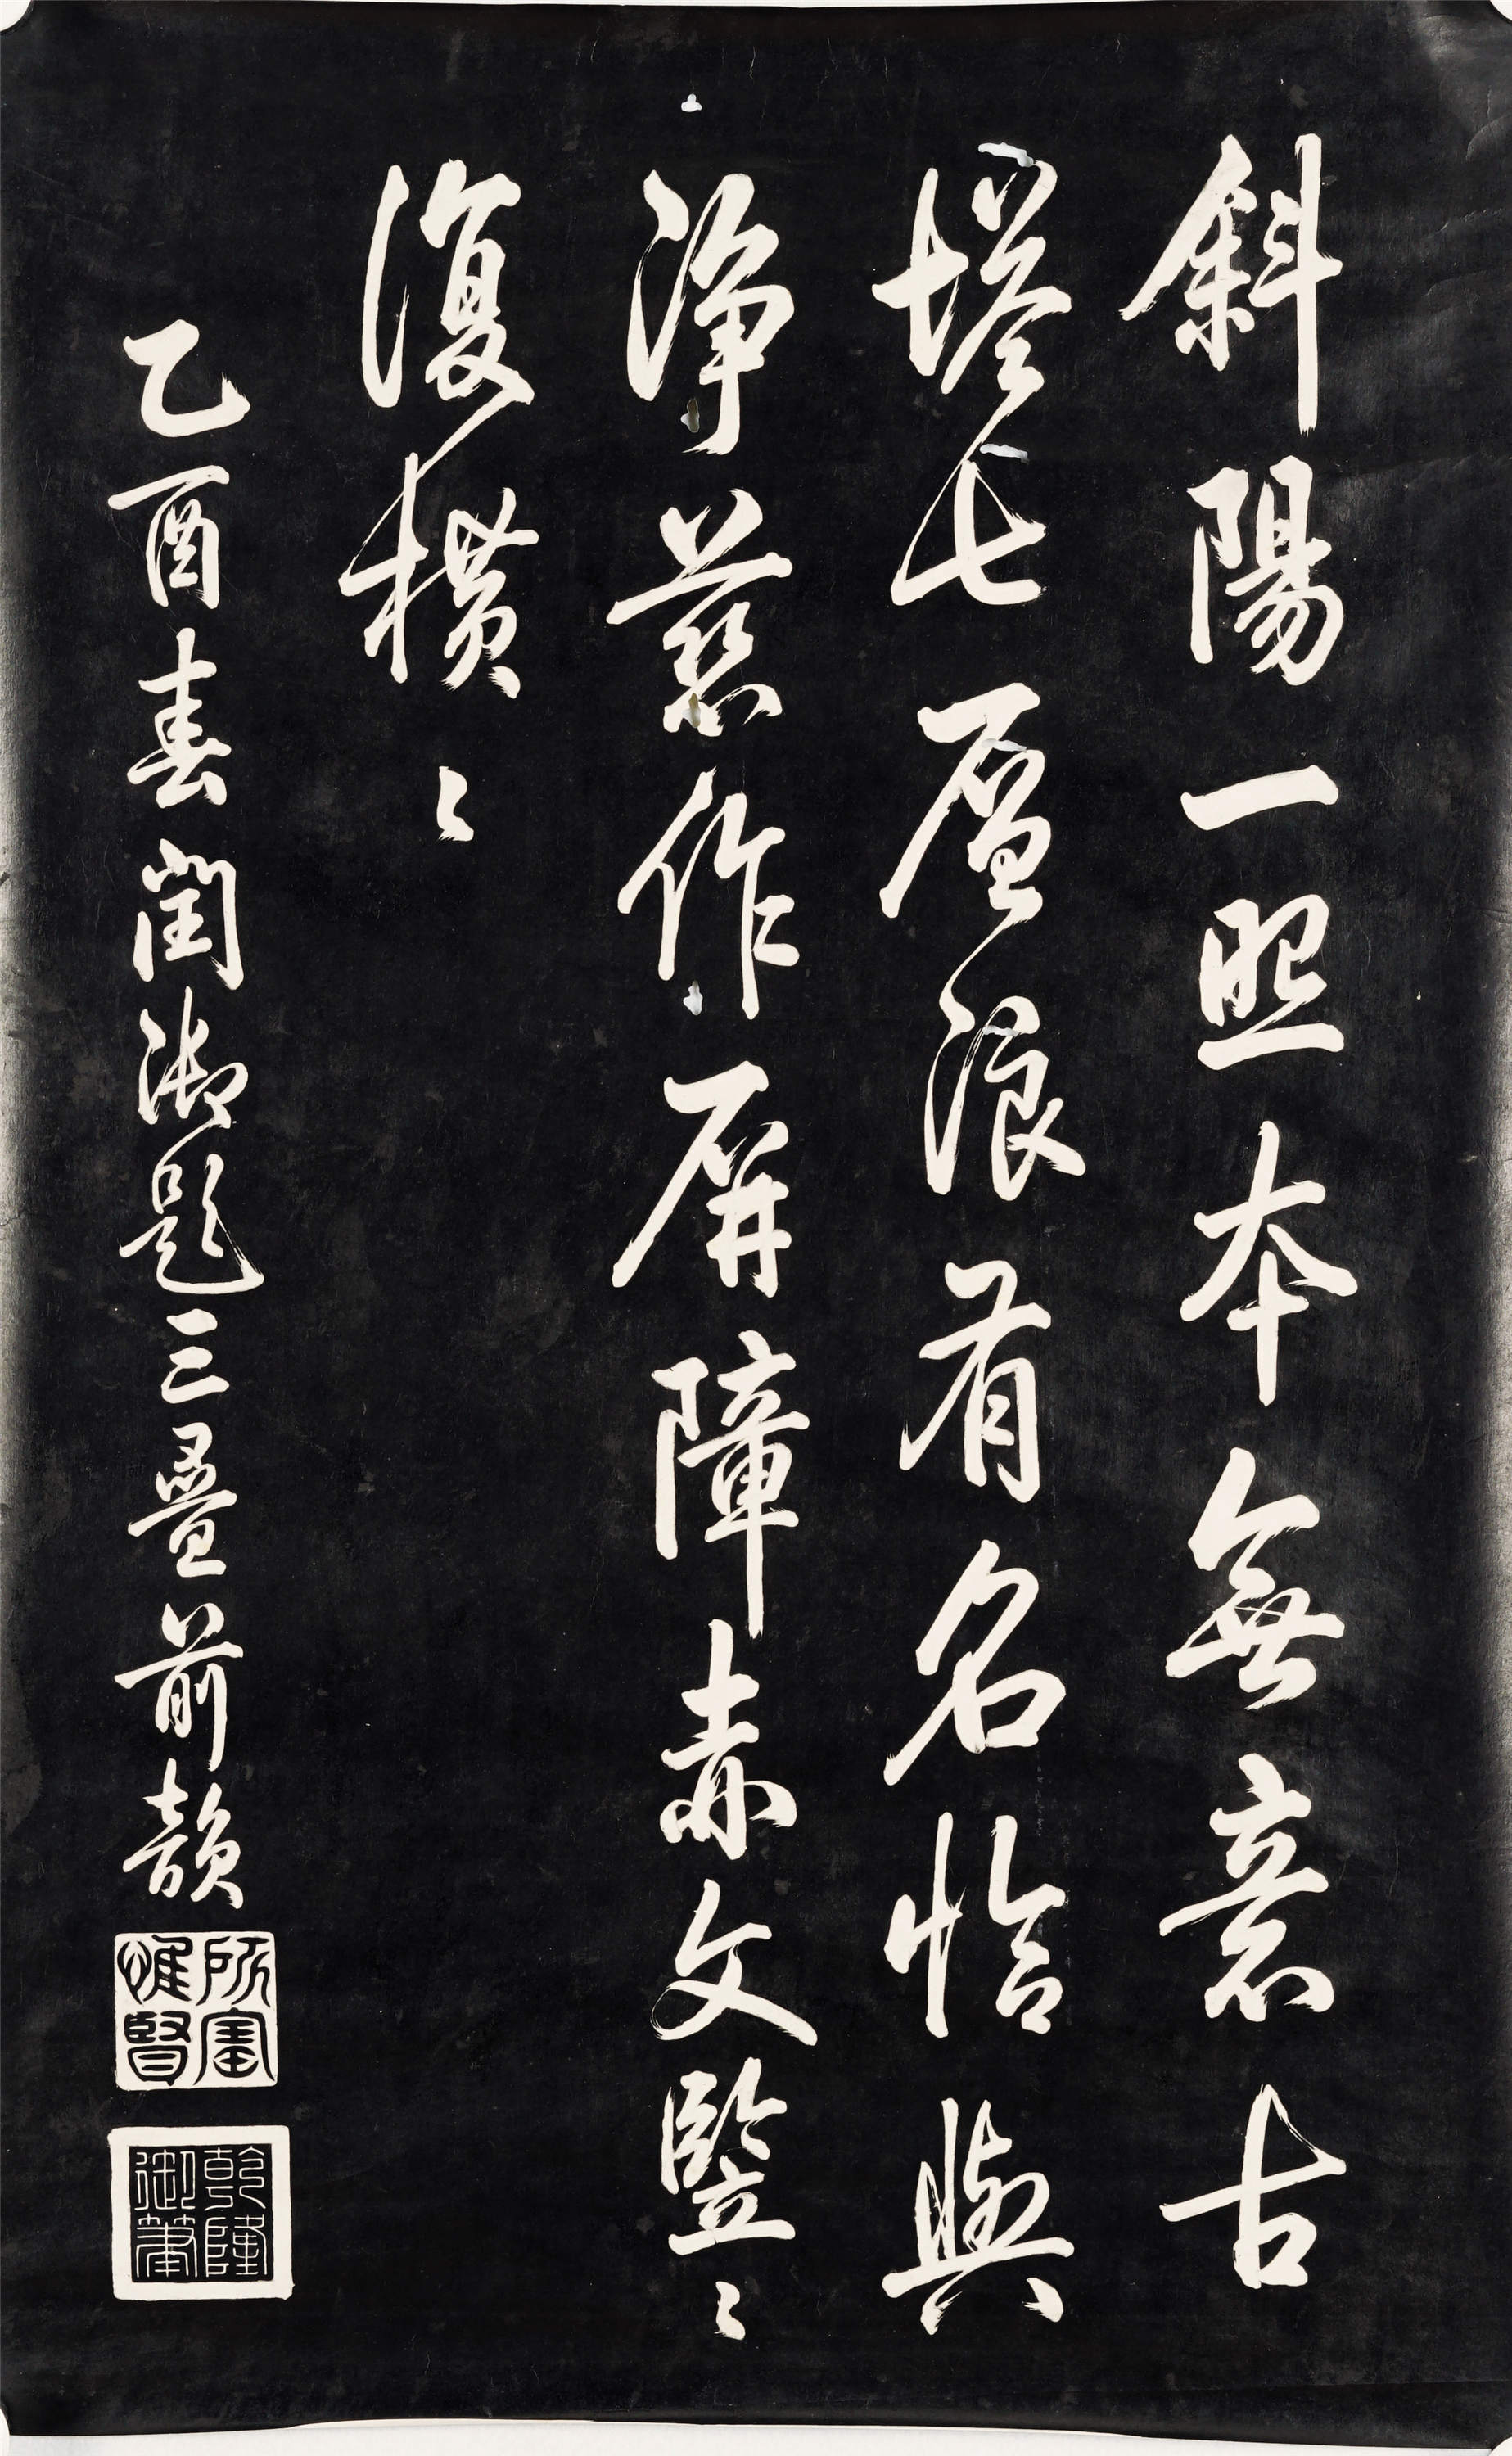 斜陽一照本無意古
塔七層浪有名恰與
淨慈作屏障赤文豎々
復橫々
乙酉春閏御題三疊前韻
所寶惟賢
乾隆御筆